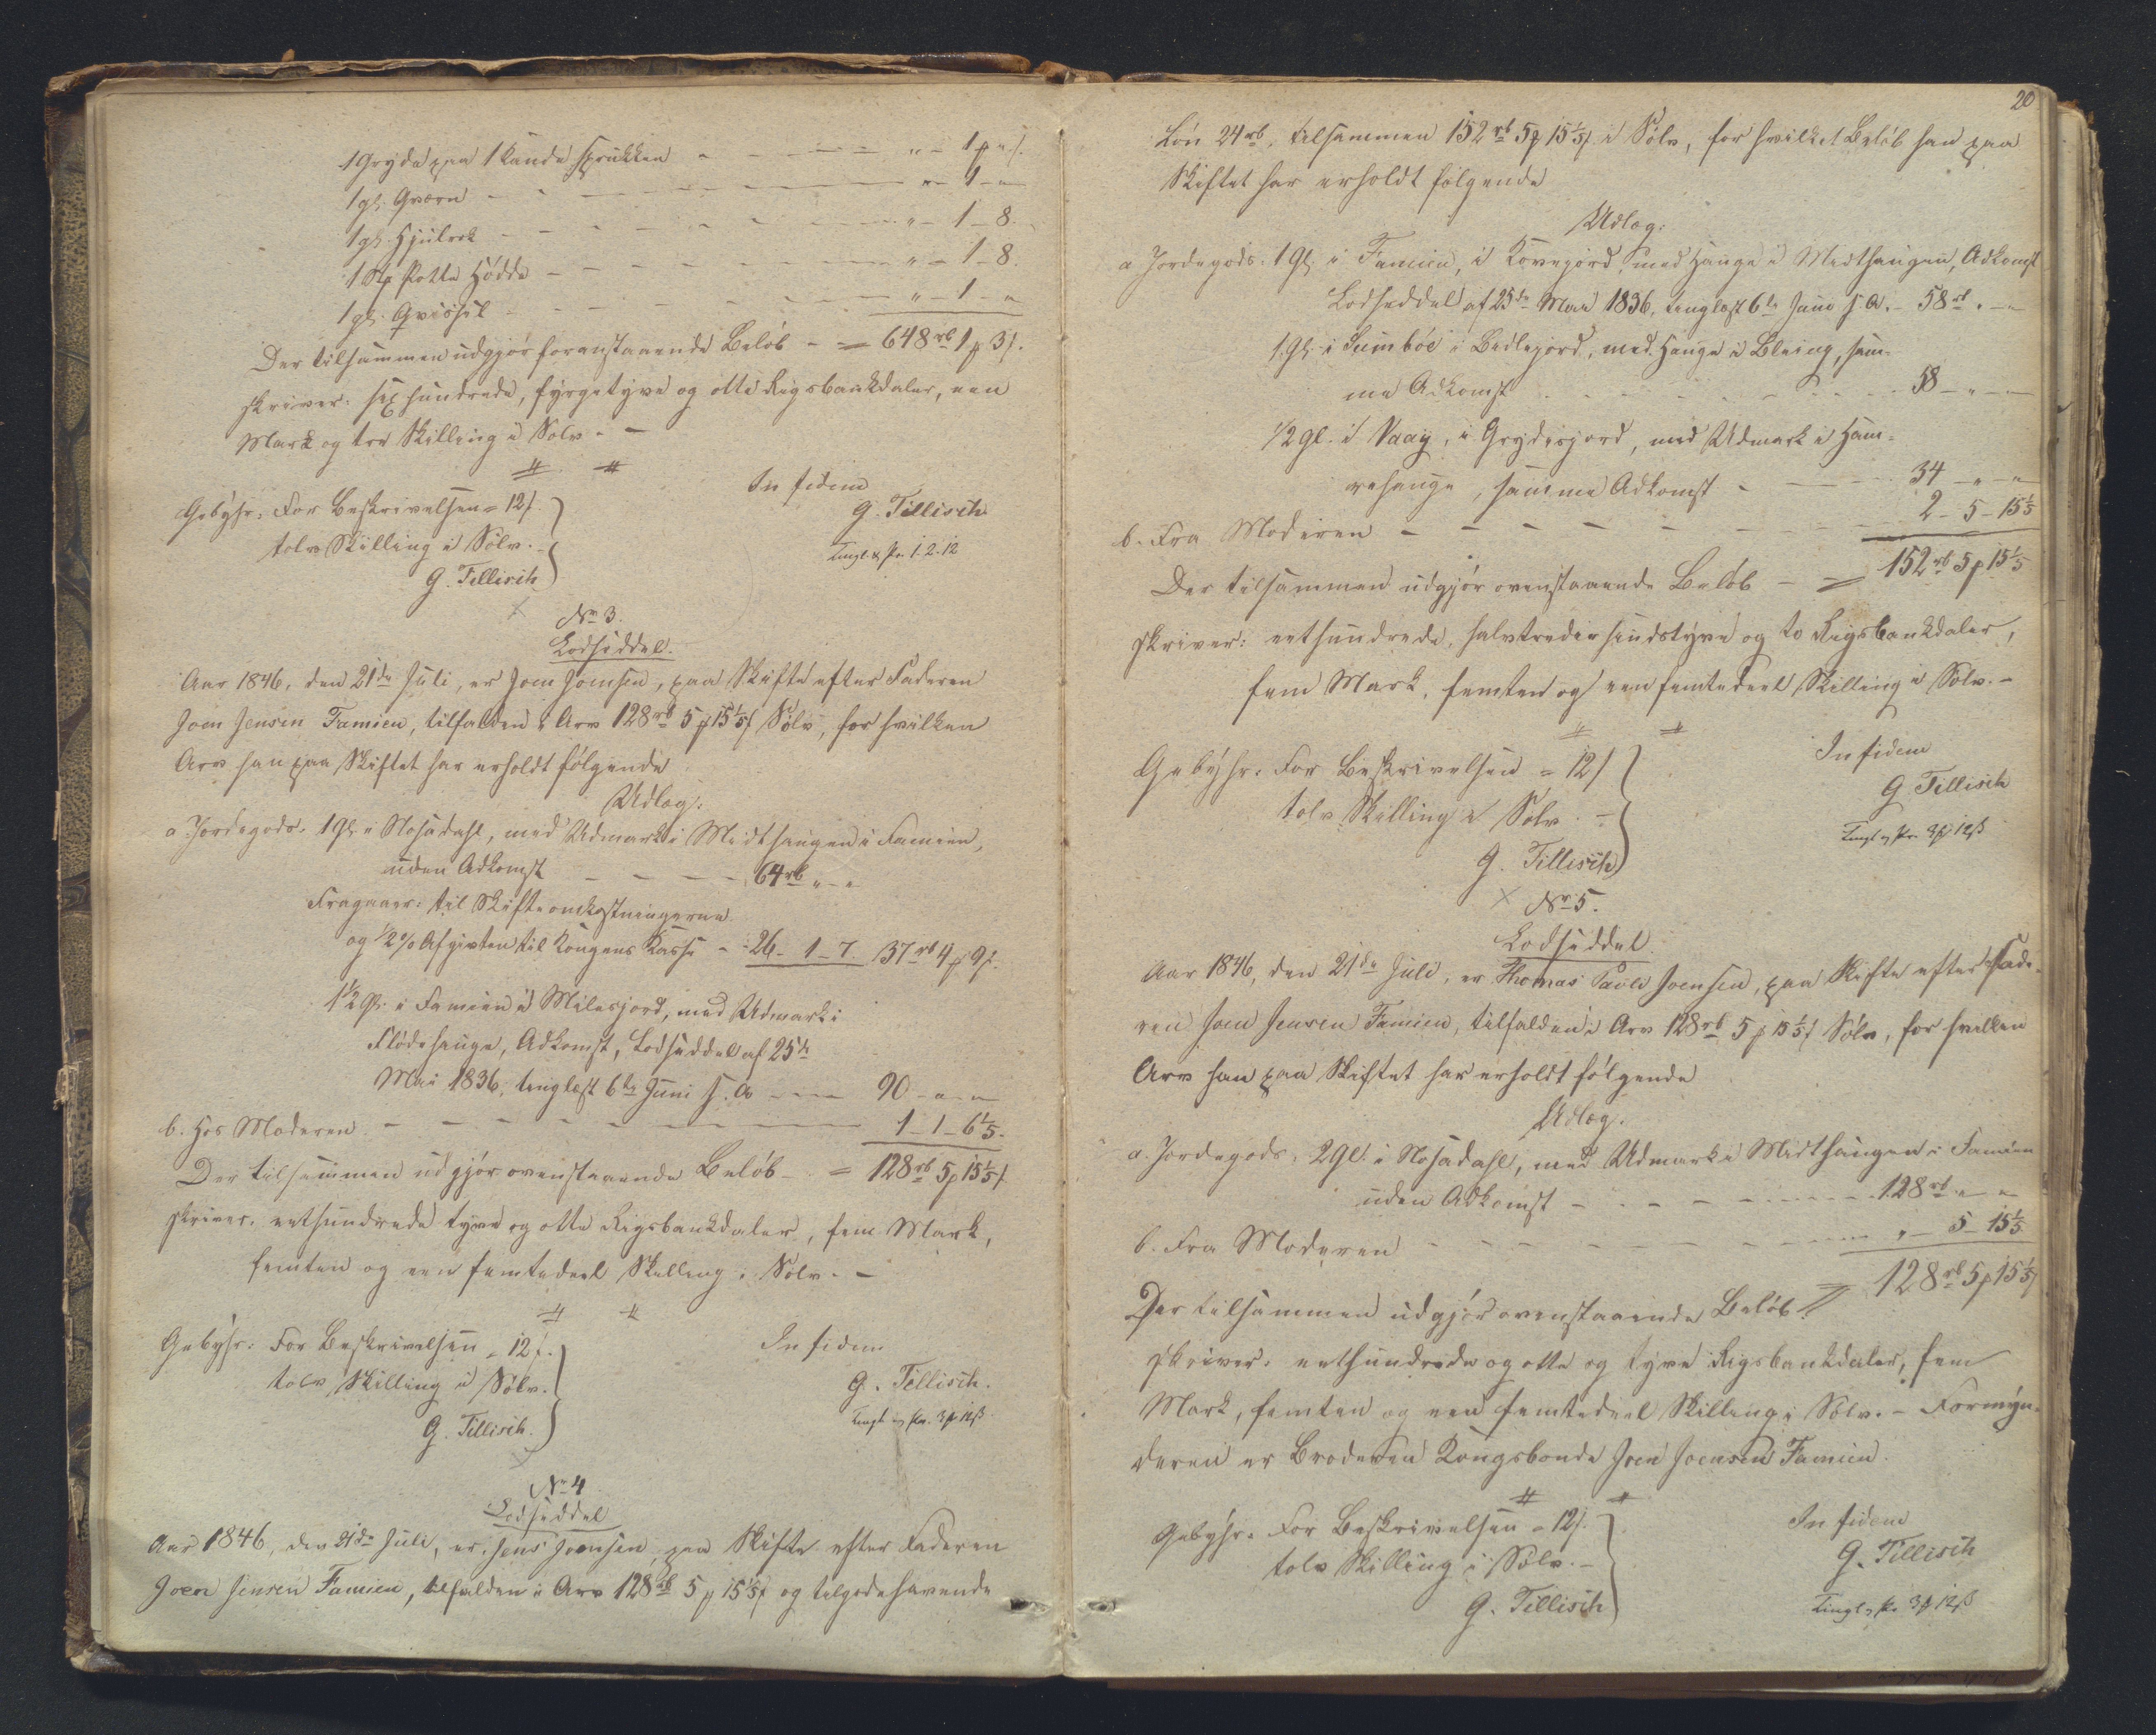 1 Gryde paa 1 Kande sprukken - - - " - 1 ₰ " ſ.
1 gl. Qværn - - - " - 1 - "
1 gl. Hjulrok - - - " - 1 - 8.
1 Potte - - - " - 1 - 8.
1 gl. - - - " - 1 - "
Der tilsammen udgjør foranstaaende Beløb - = 648 rb 1 ₰ 3 ſ.
skriver: sex hundrede, fyrgetyve og otte Rigsbankdaler, een
Mark og tre Skilling i Sølv. -
Gebyhr: For Beskrivelsen = 12 ſ.
tolv Skilling i Sølv. -
G. Tillisch
In fidem
G. Tillisch
Tingl. & Pr. 1. 2. 12
No 3.
Lodseddel.
Aar 1846, den 21de Juli, er Joen Joensen, paa Skifte efter Faderen
Joen Jensen Famien, tilfalden i Arv 128 rb 5 ₰ 15 1/5 ſ Sølv, for hvilken
Arv han paa Skiftet har erholdt følgende
Udlæg:
a Jordegods. 1 Gl. i Nosadahl, med Udmark i Midthaugen i Famien,
uden Adkomst - - - 64 rb " - "
Fragaaer: til Skifteomkostningerne
og 1/2 % Afgivten til Kongens Kasse - 26 - 1 - 7. 37 rb 4 ₰ 9 ſ.
1 1/2 Gl. i Famien i Milesjord, med Udmark i
Flødehauge, Adkomst, Lodseddel af 25de
Mai 1836, tinglæst 6te Juni s. A. - - 90 - " - "
b. Hos Moderen - - - 1 - 1 - 6 1/5.
Der tilsammen udgjør ovenstaaende Beløb - = 128 rb 5 ₰ 15 1/5 ſ
skriver: eethundrede tyve og otte Rigsbankdaler, fem Mark,
femten og een femtedeel Skilling i Sølv. -
Gebyhr: For Beskrivelsen = 12 ſ.
tolv Skilling i Sølv.
G. Tillisch.
In fidem
G. Tillisch.
Tingl. og Pr. 3 ₰ 12 ß
No 4
Lodseddel
Aar 1846, den 21de Juli, er Jens Joensen, paa Skifte efter Faderen
Joen Jensen Famien, tilfalden i Arv 128 rb 5 ₰ 15 1/5 ſ og tilgodehavende
20
Løn 24 rb, tilsammen 152 rb 5 ₰ 15 1/5 ſ i Sølv, for hvilket Beløb han paa
Skiftet har erholdt følgende
Udlæg:
a Jordegods. 1 Gl. i Famien, i Kovegjord, med Hauge i Midthaugen, Adkomst
Lodseddel af 25de Mai 1836, tinglæst 6te Juni s. A. - 58 rb " - "
1 Gl. i Sumbøe i Bedlegjord, med Hauge i Bleing, sam-
me Adkomst - - - 58 - " - "
1/2 Gl. i Vaag, i Grydisjord, med Udmark i Ham-
rehauge, samme Adkomst - - - 34 - " - "
b. Fra Moderen - - - 2 - 5 - 15 1/5
Der tilsammen udgjør ovenstaaende Beløb - = 152 rb 5 ₰ 15 1/5
skriver: eethundrede, halvtredie sindstyve og to Rigsbankdaler,
fem Mark, femten og een femtedeel Skilling i Sølv. -
Gebyhr: For Beskrivelsen = 12 ſ
tolv Skilling i Sølv. -
G. Tillisch
In fidem
G. Tillisch
Tingl. og Pr. 3 ₰ 12 ß
No 5.
Lodseddel
Aar 1846, den 21de Juli, er Thomas Pauli Joensen, paa Skifte efter Fade-
ren Joen Jensen Famien, tilfalden i Arv 128 rb 5 ₰ 15 1/5 ſ Sølv, for hvilken
Arv han paa Skiftet har erholdt følgende
Udlæg.
a. Jordegods. 2 Gl. i Nosadahl, med Udmark i Midthaugen i Famien
uden Adkomst - - - 128 rb " - "
b. Fra Moderen - - - " - 5 - 15 1/5
Der tilsammen udgjør ovenstaaende Beløb = 128 rb 5 ₰ 15 1/5 ſ
skriver: eethundrede og otte og tyve Rigsbankdaler, fem
Mark, femten og een femtedeel Skilling i Sølv. - Formyn-
deren er Broderen Kongsbonde Joen Joensen Famien.
Gebyhr: For Beskrivelsen = 12 ſ.
tolv Skilling i Sølv. -
G. Tillisch
In fidem
G. Tillisch
Tingl. og Pr. 3 ₰ 12 ß